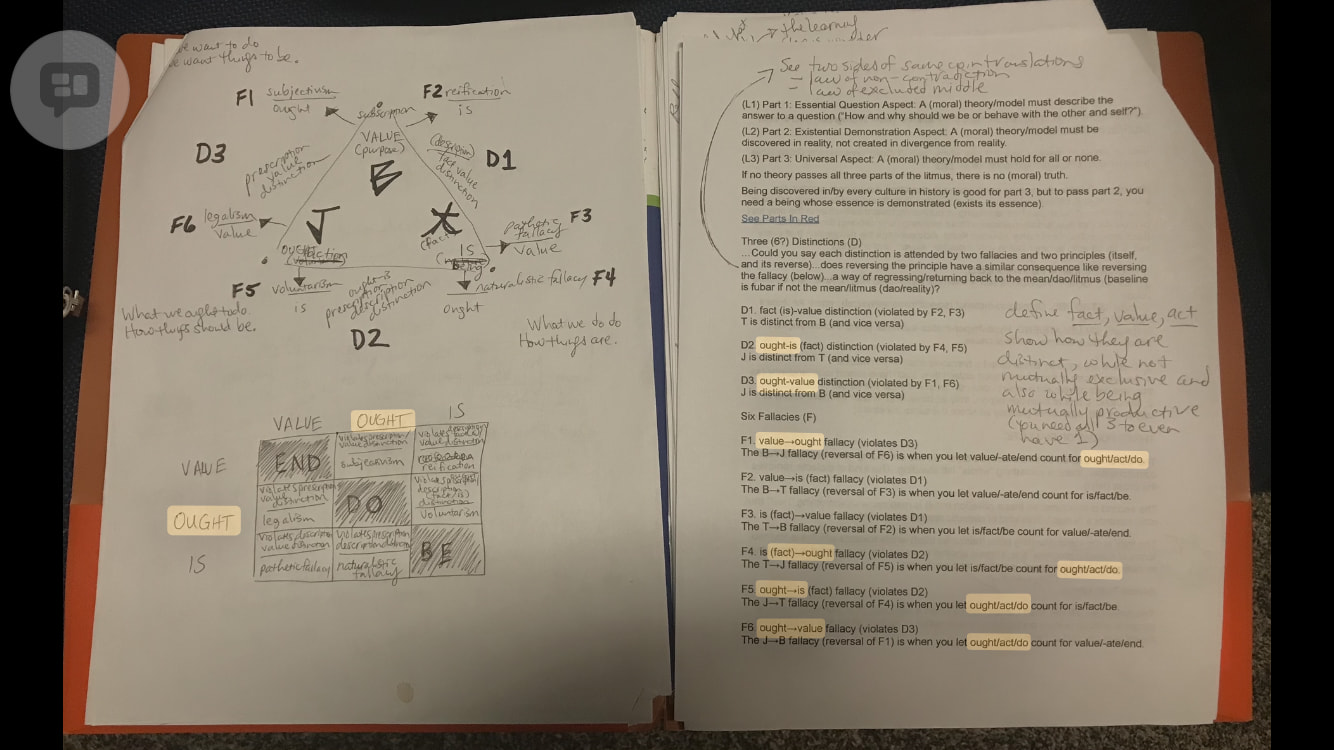 we want to do
we want things to be.
F1 subjectivism
ought
F2 reification
is
subscription
VALUE
(purpose)
B
D3
prescription
value
distinction
(description)
fact value
distinction
D1
F6 legalism
value
J
(fact)
IS
pathetic
fallacy
value
F3
OUGHT
F5 voluntarism
is
ought-is
prescription
description
distinction
naturalistic fallacy F4
ought
What we ought to do.
How things should be.
D2
What we do do
How things are.
VALUE OUGHT IS
VALUE
END
violates prescription/
value distinction
subjectivism
violates
value distinction
reification
OUGHT
violates prescription
value distinction
legalism
DO
violates
description
distinction
voluntarism
IS
violates description
value distinction
pathetic fallacy
violates prescription
description distinction
naturalistic
fallacy
BE
the learning
See two sides of same coin translations
– law of non-contradiction
– law of excluded middle
(L1) Part 1: Essential Question Aspect: A (moral) theory/model must describe the
answer to a question ("How and why should we be or behave with the other and self?")
(L2) Part 2: Existential Demonstration Aspect: A (moral) theory/model must be
discovered in reality, not created in divergence from reality.
(L3) Part 3: Universal Aspect: A (moral) theory/model must hold for all or none.
If no theory passes all three parts of the litmus, there is no (moral) truth.
Being discovered in/by every culture in history is good for part 3, but to pass part 2, you
need a being whose essence is demonstrated (exists its essence)
See Parts In Red
Three (6?) Distinctions (D)
...Could you say each distinction is attended by two fallacies and two principles (itself,
and its reverse)...does reversing the principle have a similar consequence like reversing
the fallacy (below)...a way of regressing/returning back to the mean/dao/litmus (baseline
is fubar if not the mean/litmus (dao/reality)?
D1. fact (is)-value distinction (violated by F2, F3)
T is distinct from B (and vice versa)
D2. ought-is (fact) distinction (violated by F4, F5)
J is distinct from T (and vice versa)
D3. ought-value distinction (violated by F1, F6)
J is distinct from B (and vice versa)
define fact, value, act
show how they are
distinct, while not
mutually exclusive and
also while being
mutually productive
(you need all 3 to even
have 1)
Six Fallacies (F)
F1. value→ought fallacy (violates D3)
The B→J fallacy (reversal of F6) is when you let value/-ate/end count for ought/act/do.
F2. value→is (fact) fallacy (violates D1)
The B→T fallacy (reversal of F3) is when you let value/-ate/end count for is/fact/be.
F3. is (fact)→value fallacy (violates D1)
The T→B fallacy (reversal of F2) is when you let is/fact/be count for value/-ate/end.
F4. is (fact)→ought fallacy (violates D2)
The T→J fallacy (reversal of F5) is when you let is/fact/be count for ought/act/do.
F5. ought→is (fact) fallacy (violates D2)
The J→T fallacy (reversal of F4) is when you let ought/act/do count for is/fact/be.
F6. ought→value fallacy (violates D3)
The J→B fallacy (reversal of F1) is when you let ought/act/do count for value/-ate/end.